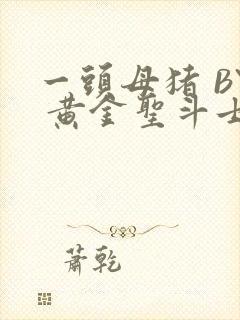 一頭母猪 BY
黄金聖斗士
蕭乾